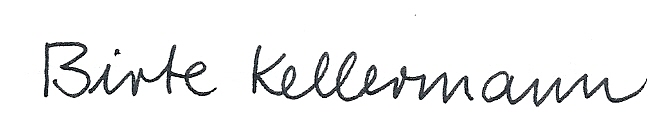 Birte Kellermann